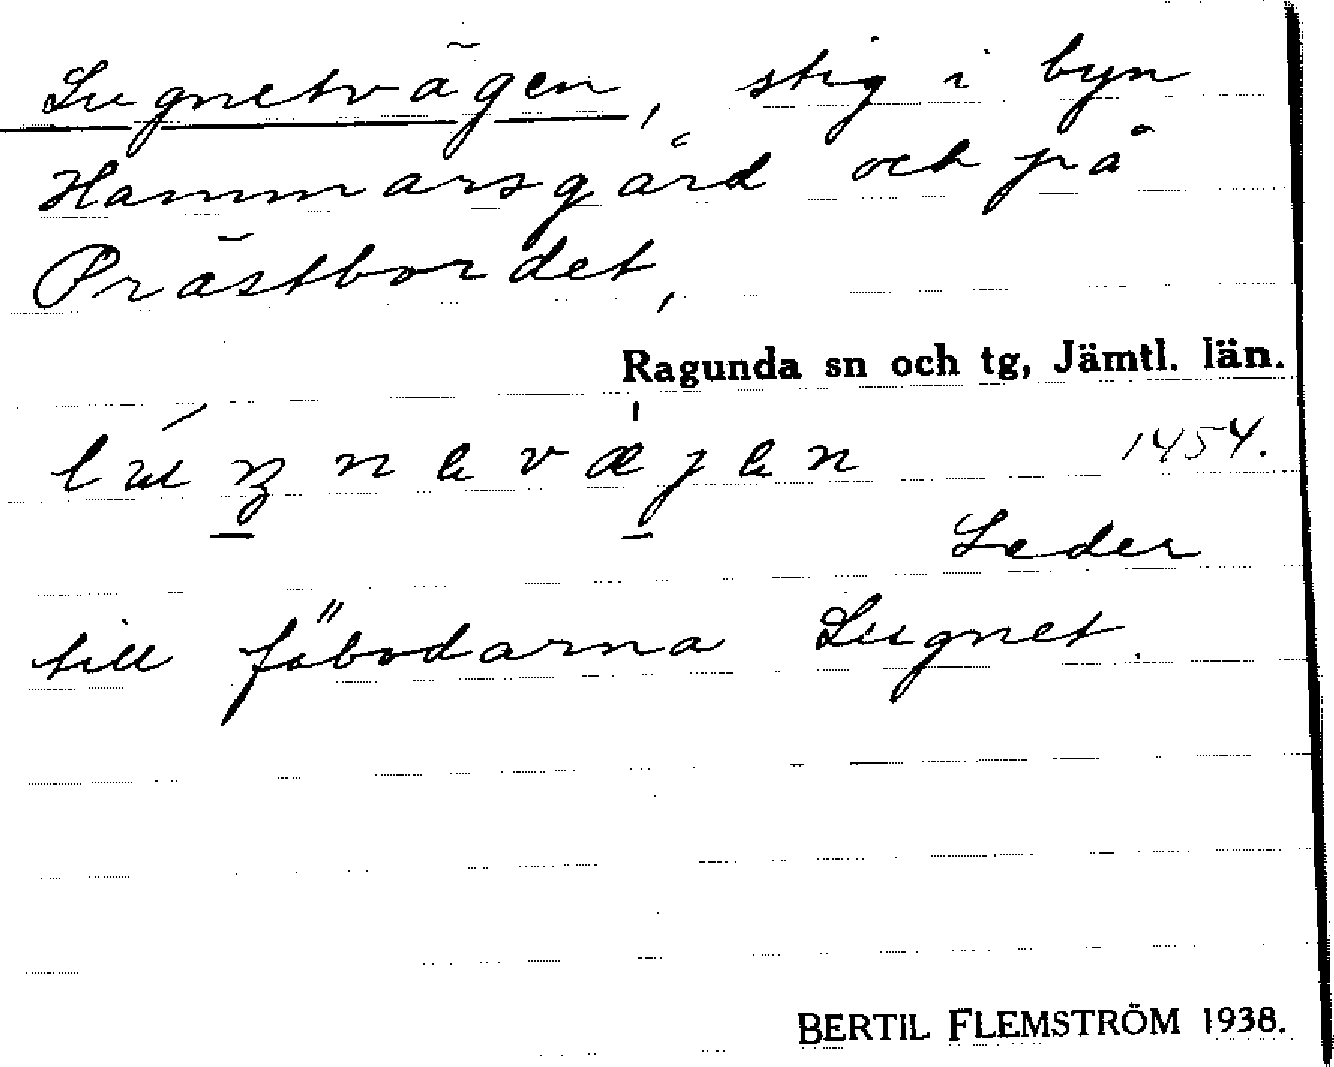 Lugnetvägen, stig i byn
Hammarsgård och på
Prästbordet,
Ragunda sn och tg, Jämtl. län.
1454.
Leder
till fäbodarna Lugnet.
BERTIL FLEMSTRÖM 1938.